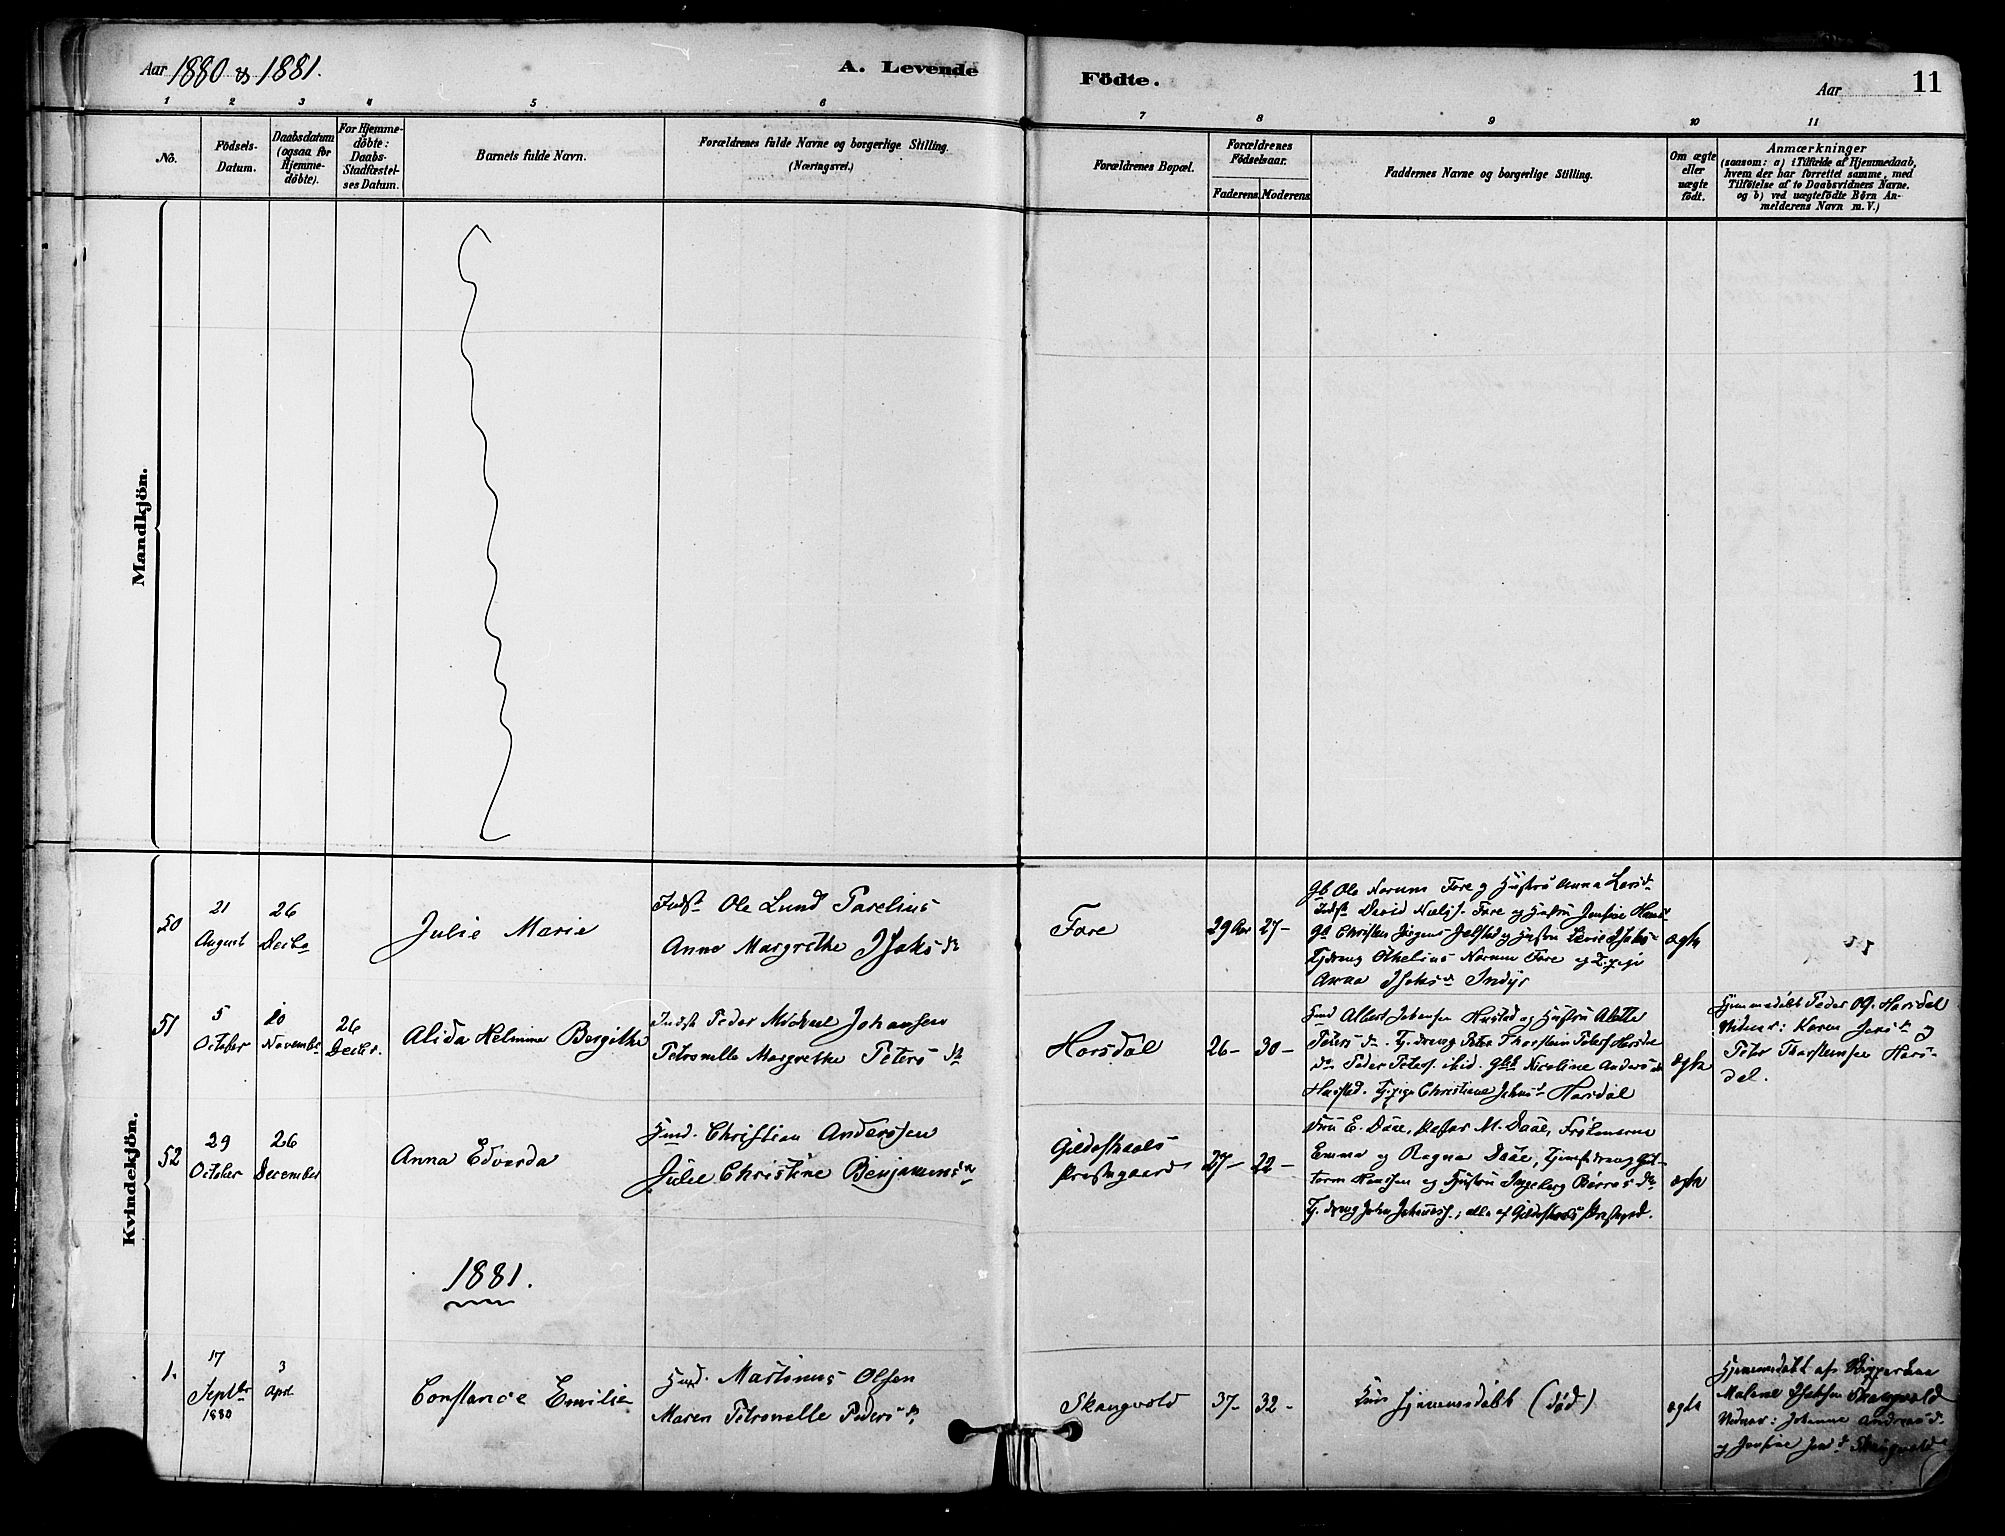 Aar 1880 & 1881.
A. Levende Födte.
Aar
11
1 2 3 4 5 6 7 8 9 10 11
No.
Födsels-
Datum.
Daabsdatum
(ogsaa for
Hjemme-
döbte).
For Hjemme-
döbte:
Daabs-
Stadfæstel-
ses Datum.
Barnets fulde Navn.
Forældrenes fulde Navne og borgerlige Stilling.
(Næringsvei.)
Forældrenes Bopæl.
Forældrenes
Födselsaar.
Faderens. Moderens.
Faddernes Navne og borgerlige Stilling.
Om ægte
eller
uægte
födt.
Anmærkninger
(saasom: a) i Tilfælde af Hjemmedaab,
hvem der har forrettet samme, med
Tilföielse af to Daabsvidners Navne.
og b) ved uægtefödte Börn An-
melderens Navn m. V.)
Mandkjön.
Kvindekjön.
50
21
August
26
Decbr
Julie Marie
Indst Ole Lund Parelius
Anna Margrethe Isaksdr
Fore
29 Aar 27-
Gb Ole Norum Fore og Hustru Anna Larsdr
Indst David Nielss. Fore og Hustru
Gb Christen Jörgens. og Hustru
Tjdreng Norum Fore og Tj.pige
Anna Isaksdr Indyr
ægte
51
5
October
20
November
26
Decbr.
Alida Helmine Bergithe
Indst Peder Mickael Johansen
Petronelle Margrethe Petersdr
Horsdal
26- 30-
Albert Jakobsen Husstad og Hustru
Petersdr. Tj.dreng Peter Thorstein Peters Horsdal
Peder Peters. ibid. Nicoline Andersdr
Husstad. Tj.pige Christiane Johnsdr Horsdal
ægte
Hjemmedöbt Peder Ol. Horsdal
Vidner: Karen Jensdr og
Peter Thorsteinsen Hors-
dal.
52
29
October
26
December
Anna Edvarda
Husmd. Christian Anderssen
Julie Christine Benjaminsdr
Gildeskaals
Prestegaard
27- 22-
Fru E. Daae, Pastor M. Daae, Frökenerne
Emma og Ragna Daae, Tjenestdreng Gut-
torm Hanssen og Hustru Ingeborg
Tj.dreng John Johanss.; alle af Gildeskaals Prestegrd.
ægte
1881.
1.
17
Septbr
1880
3
Apr.
Constance Emilie
Husmd. Martinus Olsen
Maren Petronelle Pedersdr
Skaugvold
37- 32-
Kun hjemmedöbt (död)
ægte
Hjemmedöbt af
Malene Skaugvold
Vidner: Johanne Andreasdr
og Skaugvold